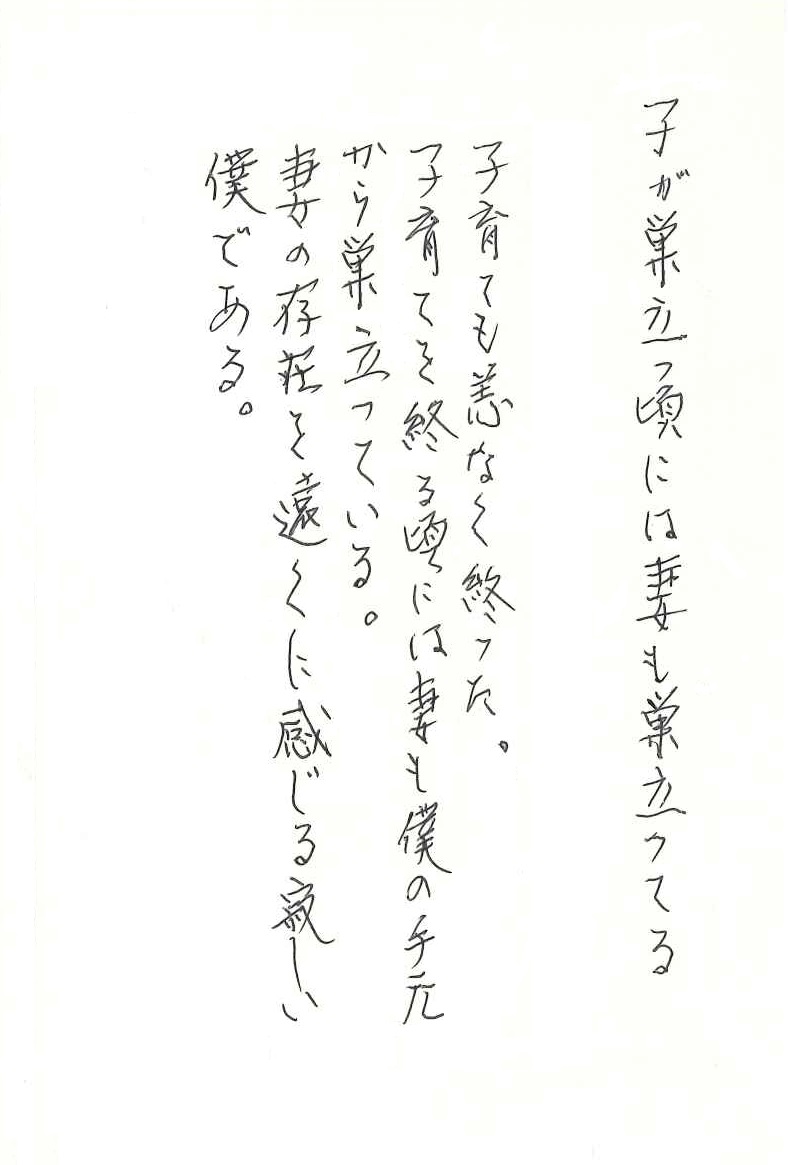 子が巣立つ頃には妻も巣立つてる
子育ても恙なく終った。
子育てを終る頃には妻も僕の手元
から巣立っている。
妻の存在を遠くに感じる寂しい
僕である。